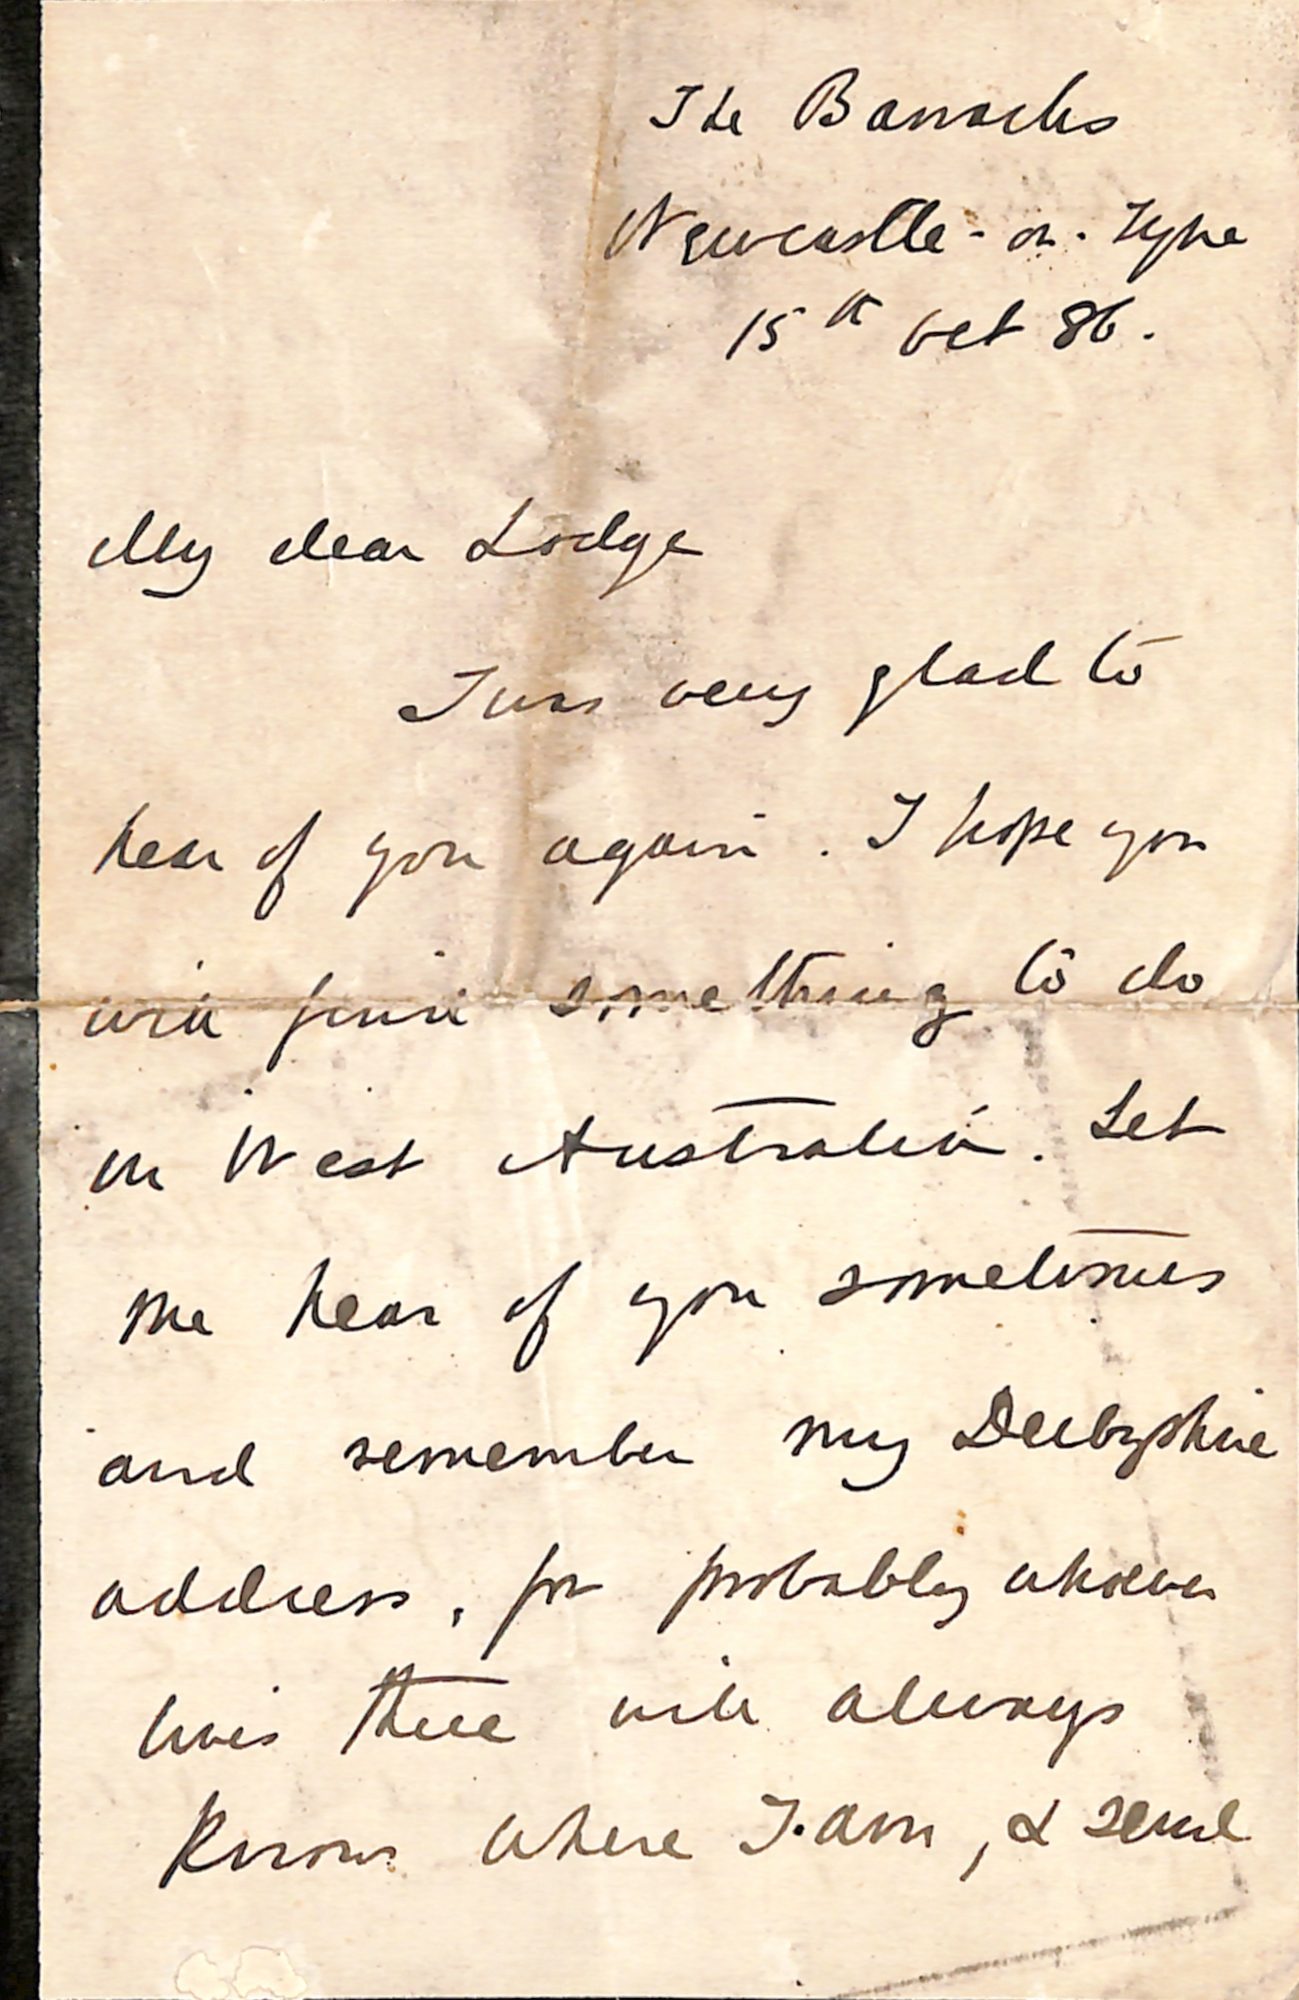 The Barracks
Newcastle-on-Tyne
15th Oct 86.
My dear Lodge
I was very glad to
hear of you again. I hope you
will find something to do
in West Australia. Let
me hear of you sometimes
and remember my Derbyshire
address, for probably whoever
lives there will always
know where I am, & send